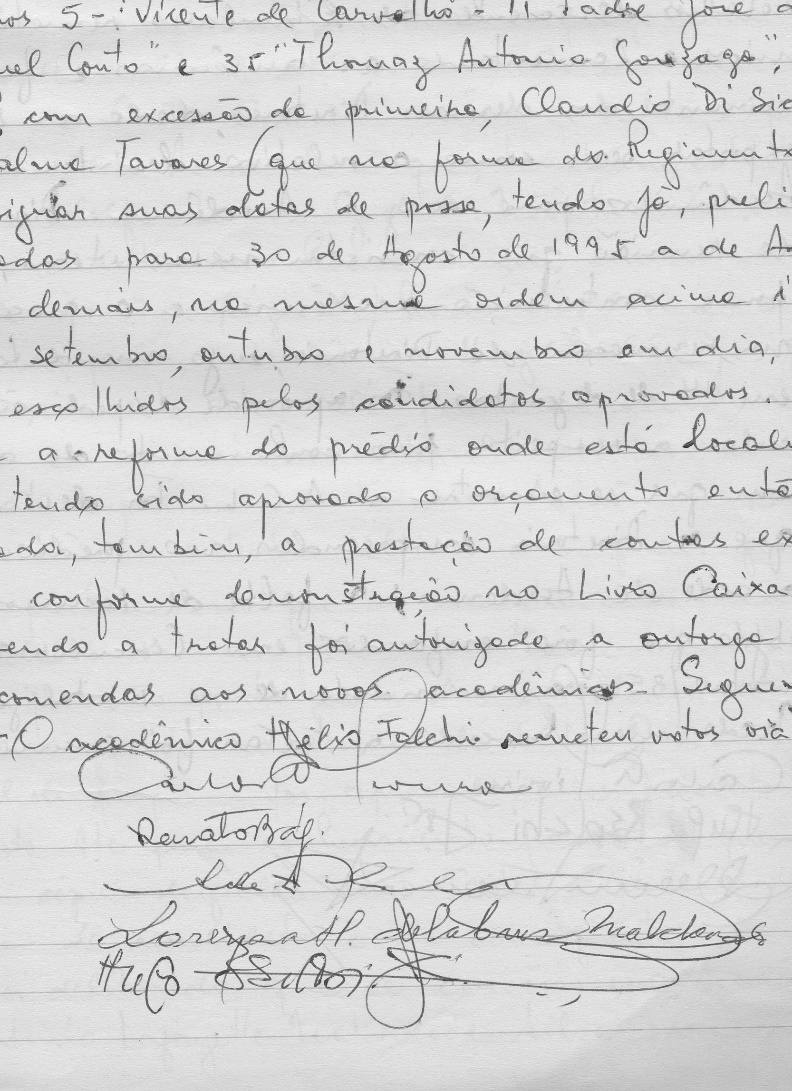 nos 5 - "Vicente de Carvalho - 11 Padre José d
uel Couto" e 35 "Thomaz Antonio Gonzaga",
com excessão do primeiro, Claudio Di Sic
alma Tavares (que na forma do Regimento
signar suas datas de posse, tendo já, preli
adas para 30 de Agosto de 1995 a de An
demais, na mesma ordem acima i
setembro, outubro e novembro em dia,
escolhidos pelos candidatos aprovados.
a reforma do prédio onde está locali
tendo sido aprovado o orçamento entã
ada, também, a prestação de contas ex
conforme demonstração no Livro Caixa
endo a tratar foi autorizada a outorga
comendas aos novos acadêmicos. Segue
- O acadêmico Hélio Falchi remeteu votos via
Renato Bág.
Lorenza H. Maldonado
Hugo